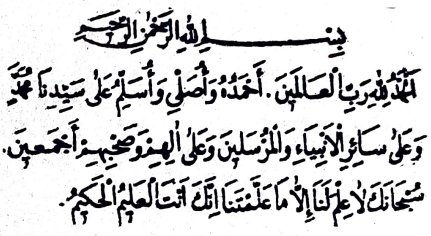 بِسْمِ اللهِ الرَّحْمٰنِ الرَّحِيمِ
اَلْحَمْدُ لِلّٰهِ رَبِّ الْعَالَمِينَ. أَحْمَدُهُ وَأُصَلِّي وَأُسَلِّمُ عَلٰى سَيِّدِنَا مُحَمَّدٍ
وَعَلٰى سَائِرِ الْأَنْبِيَاءِ وَالْمُرْسَلِينَ وَعَلٰى اٰلِهِمْ وَصَحْبِهِمْ أَجْمَعِينَ.
سُبْحَانَكَ لَا عِلْمَ لَنَا إِلَّا مَا عَلَّمْتَنَا إِنَّكَ أَنْتَ الْعَلِيمُ الْحَكِيمُ.